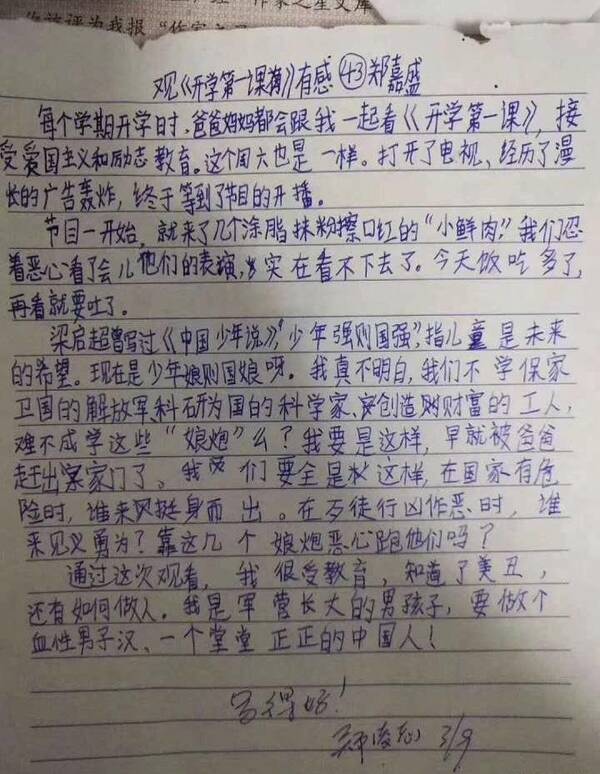 作家之星文库
你被评为我报“作家之星
观《开学第一课》有感 ㊸郑嘉盛
每个学期开学时,爸爸妈妈都会跟我一起看《开学第一课》,接
受爱国主义和励志教育。这个周六也是一样。打开了电视、经历了漫
长的广告轰炸,终于等到了节目的开播。
节目一开始,就来了几个涂脂抹粉擦口红的“小鲜肉”!我们忍
着恶心看了会儿他们的表演,实在看不下去了。今天饭吃多了,
再看就要吐了。
梁启超曾写过《中国少年说》,“少年强则国强”,指儿童是未来
的希望。现在是少年娘则国娘呀。我真不明白,我们不学保家
卫国的解放军、科研为国的科学家、创造财富的工人,
难不成学这些“娘炮”么?我要是这样,早就被爸爸
赶出家门了。我们要全是这样,在国家有危
险时,谁来挺身而出。在歹徒行凶作恶时,谁
来见义勇为?靠这几个娘炮恶心跑他们吗?
通过这次观看,我很受教育,知道了美丑,
还有如何做人。我是军营长大的男孩子,要做个
血性男子汉、一个堂堂正正的中国人!
写得好!
3/9